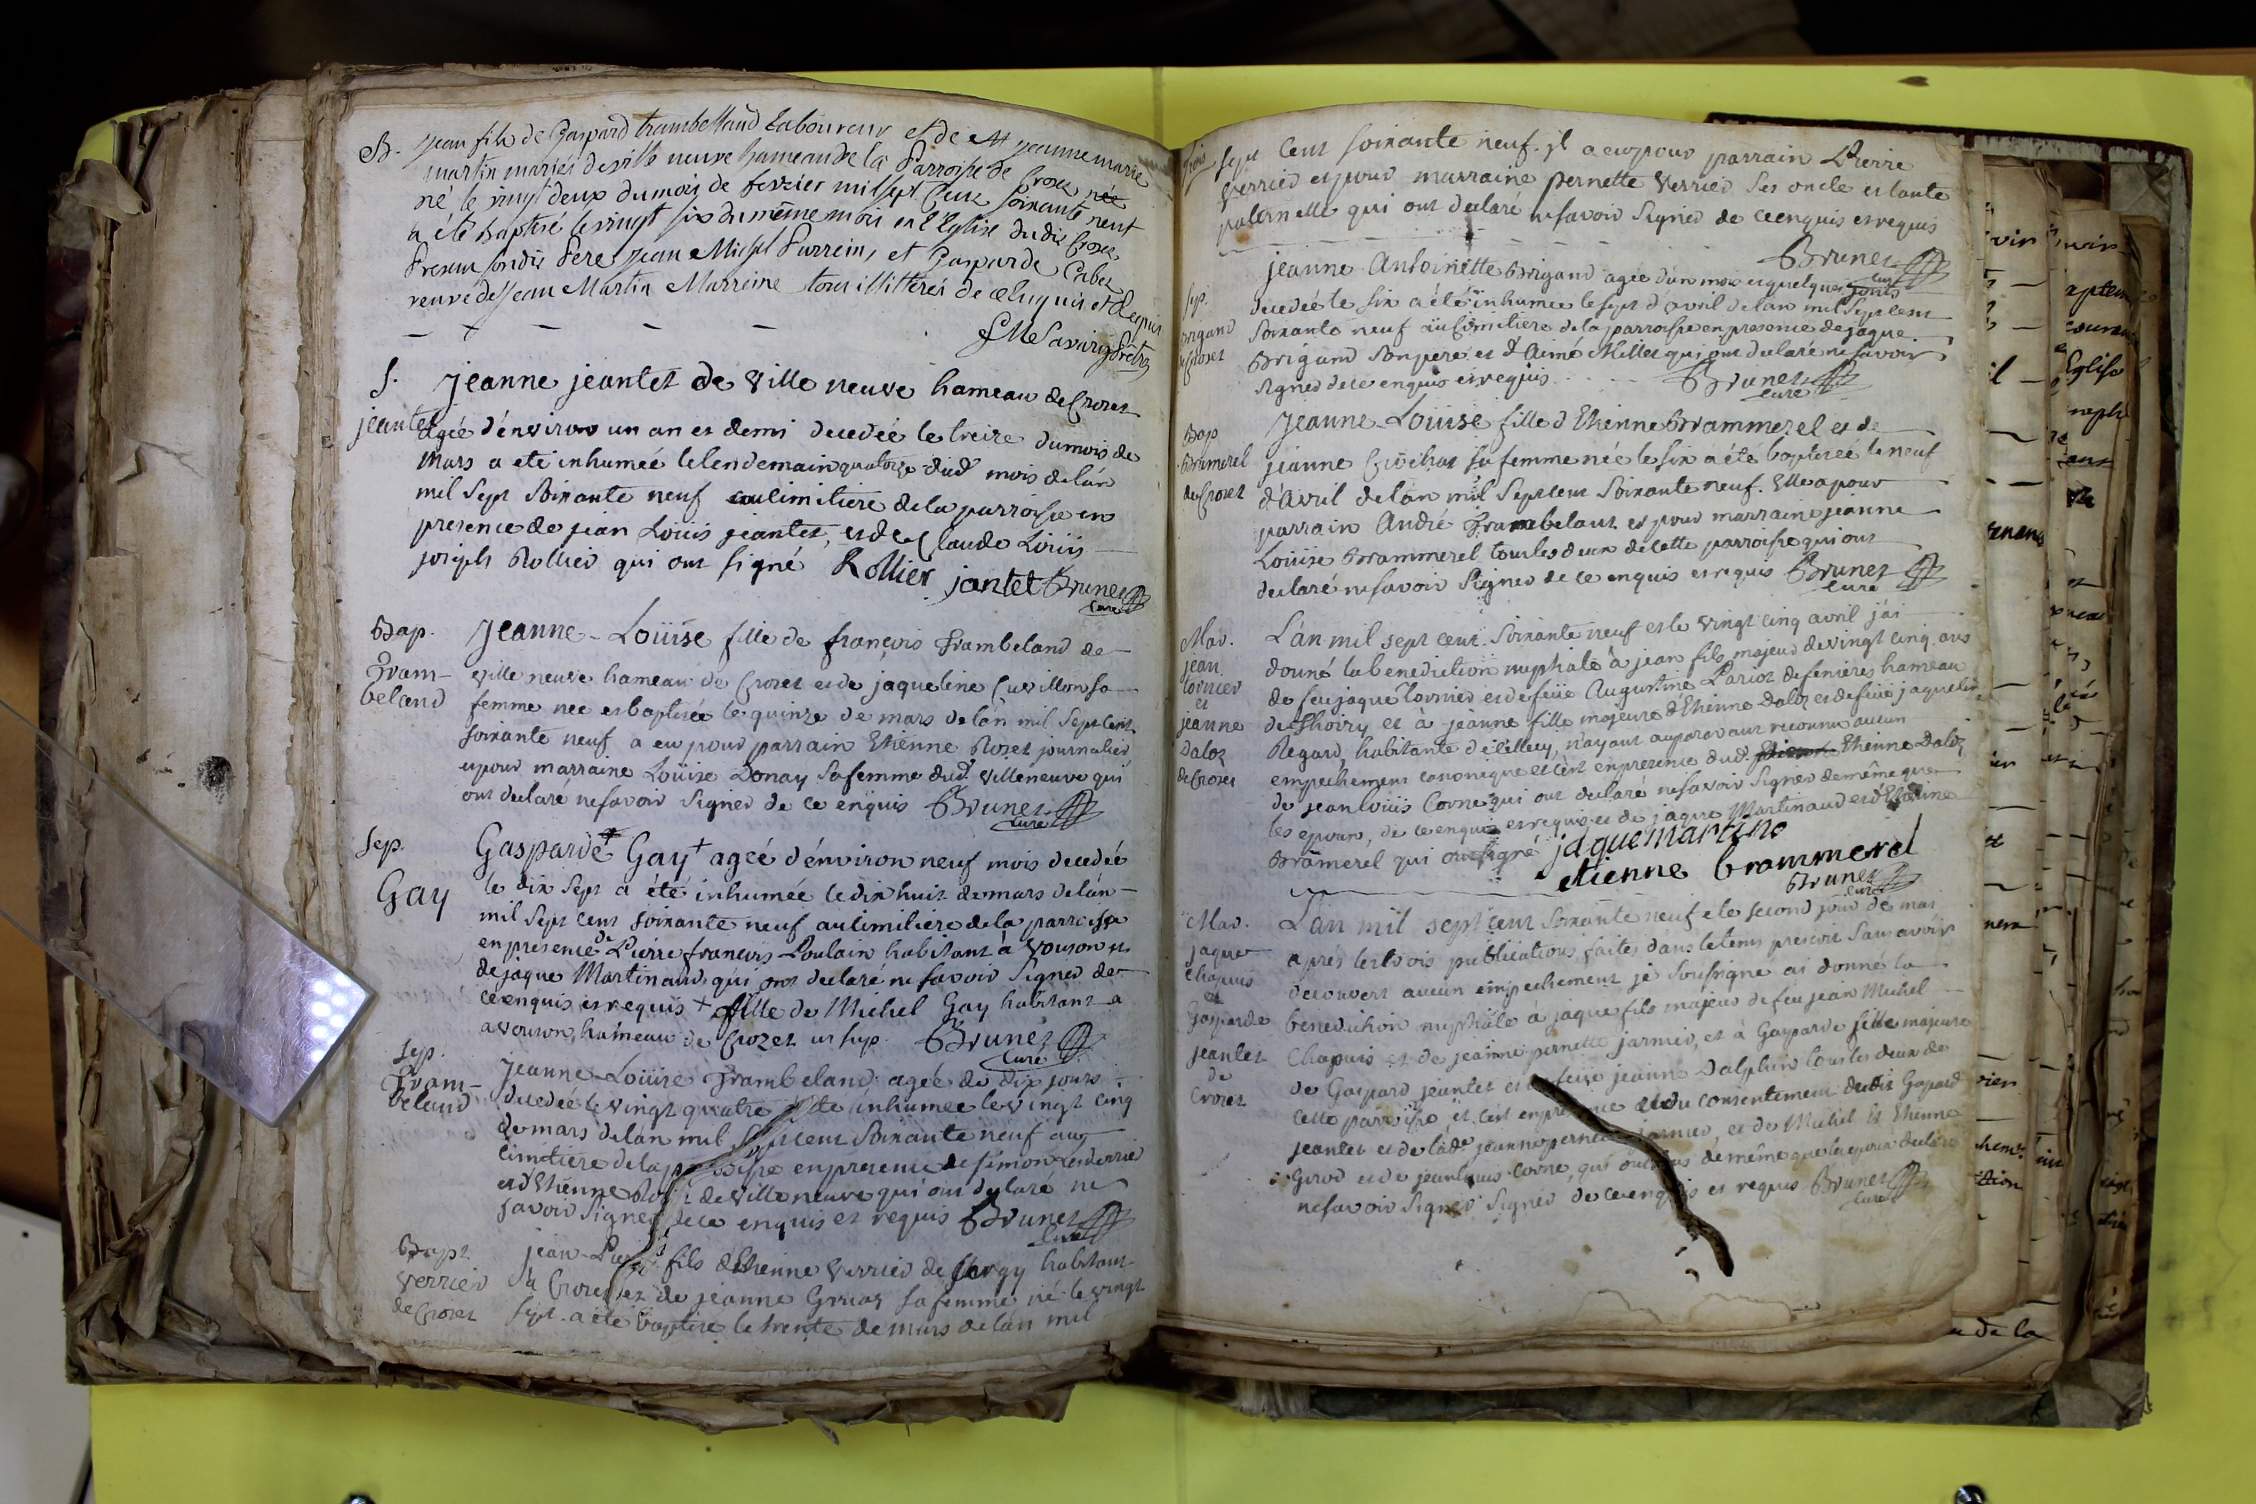 B. jean fils de Gaspard trambelland Laboureur et de M jeanne marie
martin mariés de ville neuve hameau de la Parroisse de Crozet née
né le vingt deux du mois de fevrier mil sept Cent soixante neuf
a été Baptisé le vingt six du même mois en l'Eglise dudit Crozet
Present sondit Pere jean Michel Parrein, et Gasparde
veuve de jean Martin Marreine tous illitterés de ce enquis et Requis
Savarin Prêtre
S. jeanne jeantet de ville neuve hameau de Crozet
jeantet agée d'environ un an et demi decedée le treize du mois de
Mars a eté inhumée le lendemain quatorze dud mois de l'an
mil sept soixante neuf au cimitiere de la parroisse en
presence de jean Loüis jeantet, et de Claude Loüis
joseph Rollier qui ont signé Rollier jantet Brunet
curé
Bap. Jeanne-Loüise fille de françois Trambeland de
Tram- ville neuve hameau de Crozet et de jaqueline Cuvillon sa
beland femme née et baptisée le quinze de mars de l'an mil sept cent
soixante neuf a eu pour parrain Etienne Rozet journalier
et pour marraine Loüise Donay sa femme dud. villeneuve qui
ont declaré ne savoir signer de ce enquis Brunet
curé
Sep. Gasparde + Gay + agée d'environ neuf mois decedée
Gay le dix sept a été inhumée le dix huit de mars de l'an
mil sept cent soixante neuf au cimitiere de la parroisse
en presence de Pierre françois Poulain habitant à vouson et
de jaque Martinaud qui ont declaré ne savoir signer de
ce enquis et requis + fille de Michel Gay habitant a
avouson, hameau de Crozet ut sup. Brunet
curé
Sep. Jeanne-Loüise Trambeland agée de dix jours
Tram- decedée le vingt quatre a été inhumée le vingt cinq
beland de mars de l'an mil sept cent soixante neuf au
cimitiere de la parroisse en presence de simon
et d'Etienne de ville neuve qui ont declaré ne
savoir signer de ce enquis et requis Brunet
curé
Bapt. jean-Pierre fils d'Etienne Verrier de Sergy habitant
Verrier à Crozet et de jeanne Gruaz sa femme né le vingt
de Crozet sept a été baptisé le trente de mars de l'an mil
sept Cent soixante neuf. il a eu pour parrain Pierre
Verrier et pour marraine Pernette Verrier ses oncle et tante
paternelle qui ont declaré ne savoir signer de ce enquis et requis
Brunet
curé
Sep. jeanne Antoinette Brigand agée d'un mois et quelques jours
brigand decedée le six a été inhumée le sept d'avril de l'an mil sept cent
de Crozet soixante neuf au Cimitiere de la parroisse en presence de jaque
Brigand son pere et d'Aimé Millet qui ont declaré ne savoir
signer de ce enquis et requis Brunet
curé
Bap Jeanne-Loüise fille d'Etienne Brammerel et de
Bramerel jeanne Crochat sa femme née le six a été baptisée le neuf
de Crozet d'Avril de l'an mil sept cent soixante neuf. Elle a pour
parrain André Trambelant et pour marraine jeanne
Loüise Brammerel tous les deux de cette parroisse qui ont
declaré ne savoir signer de ce enquis et requis Brunet
curé
Mar. L'an mil sept cent soixante neuf et le vingt cinq avril j'ai
jean donné la benediction nuptiale à jean fils majeur de vingt cinq ans
tornier de feu jaque tornier et de feüe Augustine Pariot de fenieres hameau
et
jeanne de Thoiry et à jeanne fille majeure d'Etienne Daloz et de feüe jaqueline
Daloz Regard, habitante d'Etilley, n'ayant auparavant reconnu aucun
de Crozet empechement canonique et c'est en presence dud. Etienne Daloz
de jean loüis Corne qui ont declaré ne savoir signer de même que
les epoux, de ce enquis et requis et de jaque Martinaud et d'Etienne
Bramerel qui ont signé jaque martino
etienne brammerel
Brunet
curé
Mar. L'an mil sept cent soixante neuf et le second jour de mai
jaque après les trois publications faites dans le tems prescrit sans avoir
Chapuis decouvert aucun empechement je soussigné ai donné la
et
Gasparde benediction nuptiale à jaque fils majeur de feu jean Michel
jeantet Chapuis et de jeanne pernette jarnier, et à Gasparde fille majeure
de de Gaspard jeantet et de feüe jeanne Dalphin tous les deux de
Crozet cette parroisse, et c'est en presence et du consentement dudit Gaspard
jeantet et de ladte jeanne pernette jarnier, et de Michel et Etienne
Girod et de jean louis Corne, qui ont tous de même que les epoux declaré
ne savoir signer signer de ce enquis et requis Brunet
curé